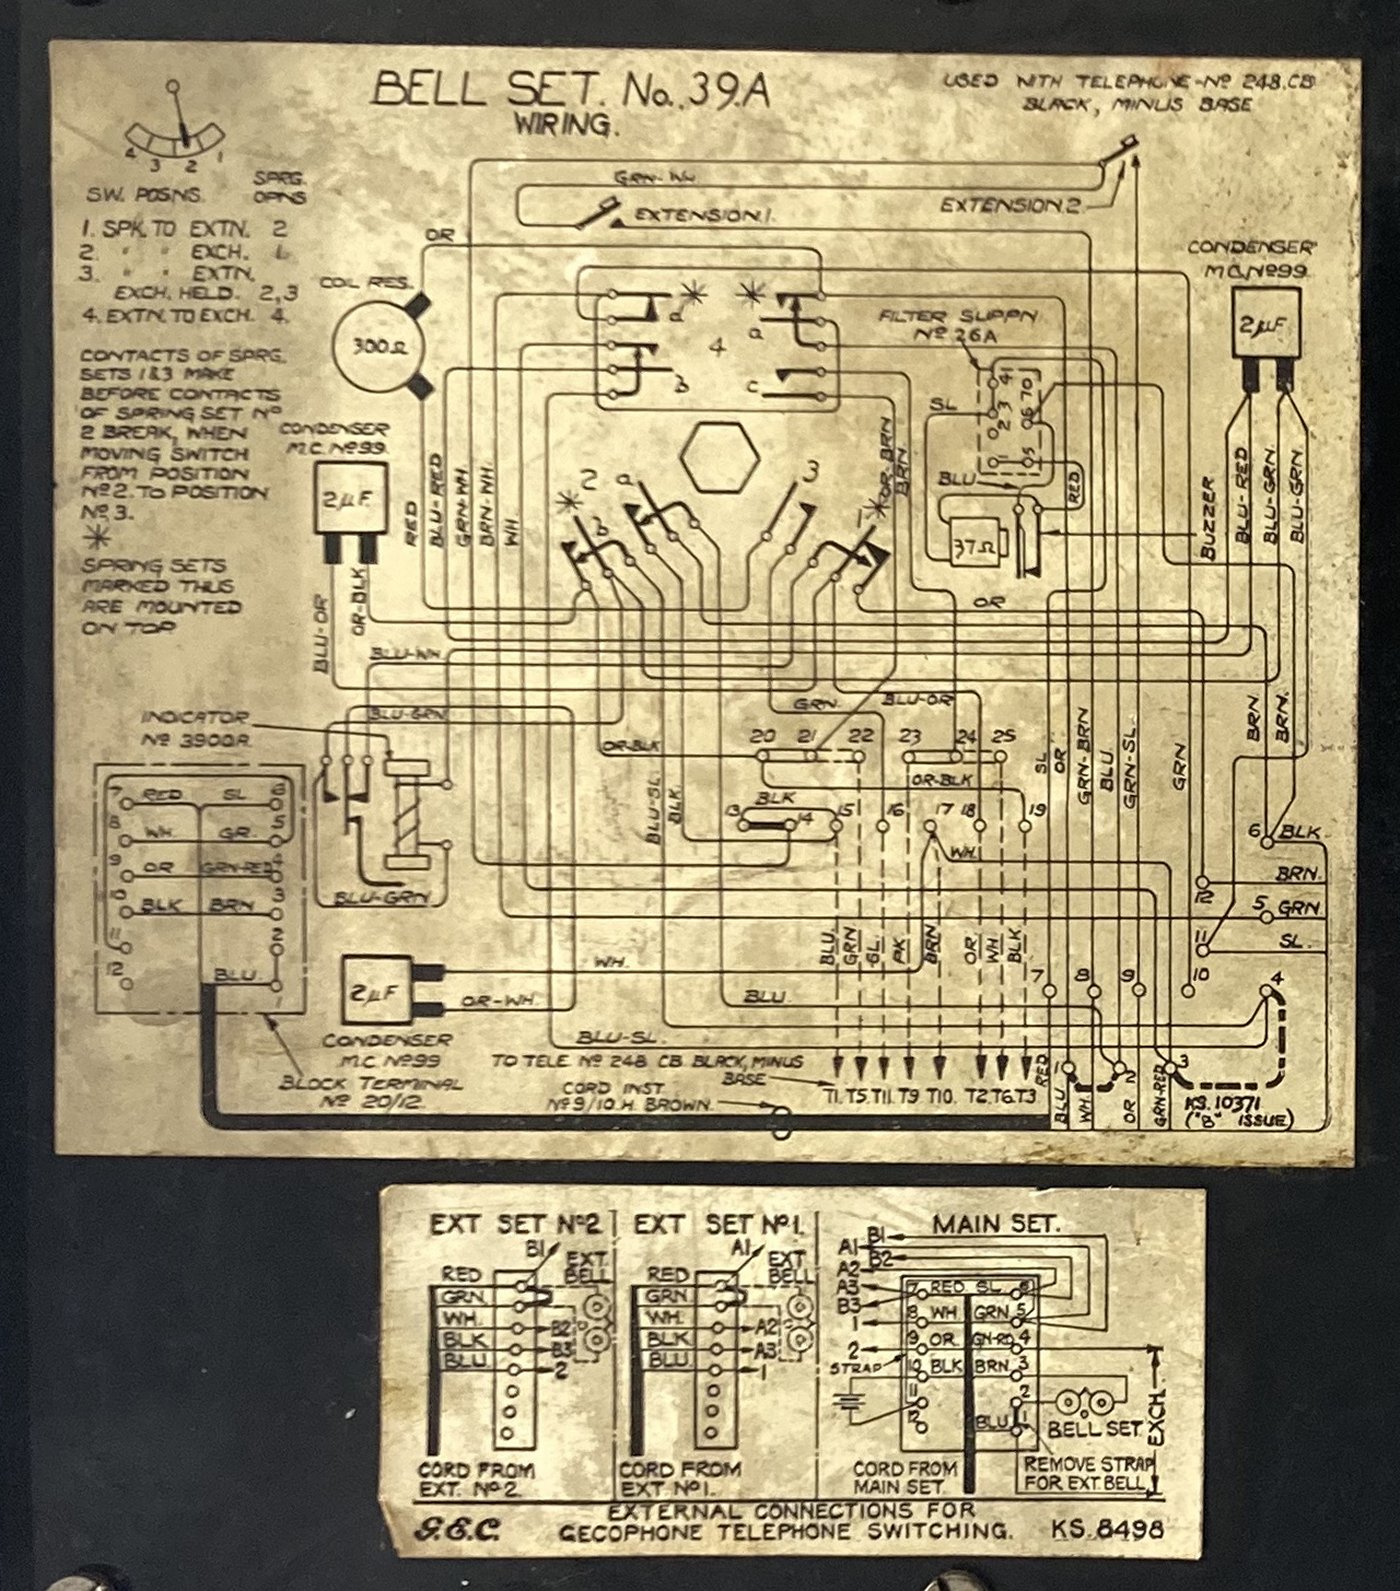 BELL SET. No. 39.A
WIRING.
USED WITH TELEPHONE Nº 248.CB
BLACK, MINUS BASE
4 3 2 1
SW. POSNS. SPRG. OPNS
1. SPK. TO EXTN. 2
2. " " EXCH. 1.
3. " " EXTN.
EXCH. HELD. 2,3
4. EXTN. TO EXCH. 4.
CONTACTS OF SPRG.
SETS 1&3 MAKE
BEFORE CONTACTS
OF SPRING SET Nº
2 BREAK, WHEN
MOVING SWITCH
FROM POSITION
Nº2. TO POSITION
Nº3.
SPRING SETS
MARKED THUS
ARE MOUNTED
ON TOP
GRN-WH
EXTENSION.1.
EXTENSION.2.
OR
COIL RES.
300Ω
CONDENSER
M.C. Nº99.
2µF
CONDENSER
M.C. Nº99
2µF
a
a
4
b
c
FILTER SUPPN
Nº 26A
41
3
2
1
70
6
5
SL
BLU
RED
37Ω
BUZZER
BLU-RED
BLU-GRN
BLU-GRN
2
a
b
3
1
OR-BRN
BRN
RED
BLU-RED
GRN-WH
BRN-WH
WH
BLU-OR
OR-BLK
OR
BLU-WH
BLU-GRN
GRN.
BLU-OR
INDICATOR
Nº 3900A
BLU-GRN
OR-BLK
20 21 22 23 24 25
OR-BLK
BLK
13 14 15 16 17 18 19
BLU-SL
BLK
WH.
SL
OR
GRN-BRN
BLU
GRN-SL
GRN
BRN
BRN.
6 BLK
BRN.
12
5 GRN
SL.
11
7 RED SL 6
8 WH GR. 5
9 OR GRN-RED 4
10 BLK BRN 3
11 2
12 BLU 1
BLOCK TERMINAL
Nº 20/12.
2µF
CONDENSER
M.C. Nº99
WH.
OR-WH.
BLU
BLU-SL.
BLU
GRN
SL.
PK
BRN
OR
WH
BLK
7 8 9 10 4
TO TELE. Nº 248 CB BLACK, MINUS
BASE
T1. T5. T11. T9 T10. T2. T6. T3
CORD INST
Nº9/10.H. BROWN.
RED
1 2 3
BLU
WH.
OR
GRN-RED
KS.10371
("B" ISSUE)
EXT SET Nº2
B1
EXT.
BELL
RED
GRN
WH. B2
BLK B3
BLU 2
CORD FROM
EXT. Nº2.
EXT SET Nº1.
A1
EXT
BELL
RED
GRN
WH. A2
BLK A3
BLU 1
CORD FROM
EXT Nº1.
MAIN SET.
B1
A1
B2
A2
A3
B3
1
2
STRAP
7 RED SL 6
8 WH GRN 5
9 OR. GN-RD 4
10 BLK BRN 3
11 2
12 BLU 1
BELL SET.
EXCH.
CORD FROM
MAIN SET.
REMOVE STRAP
FOR EXT. BELL
EXTERNAL CONNECTIONS FOR
GECOPHONE TELEPHONE SWITCHING. KS.8498
G.E.C.